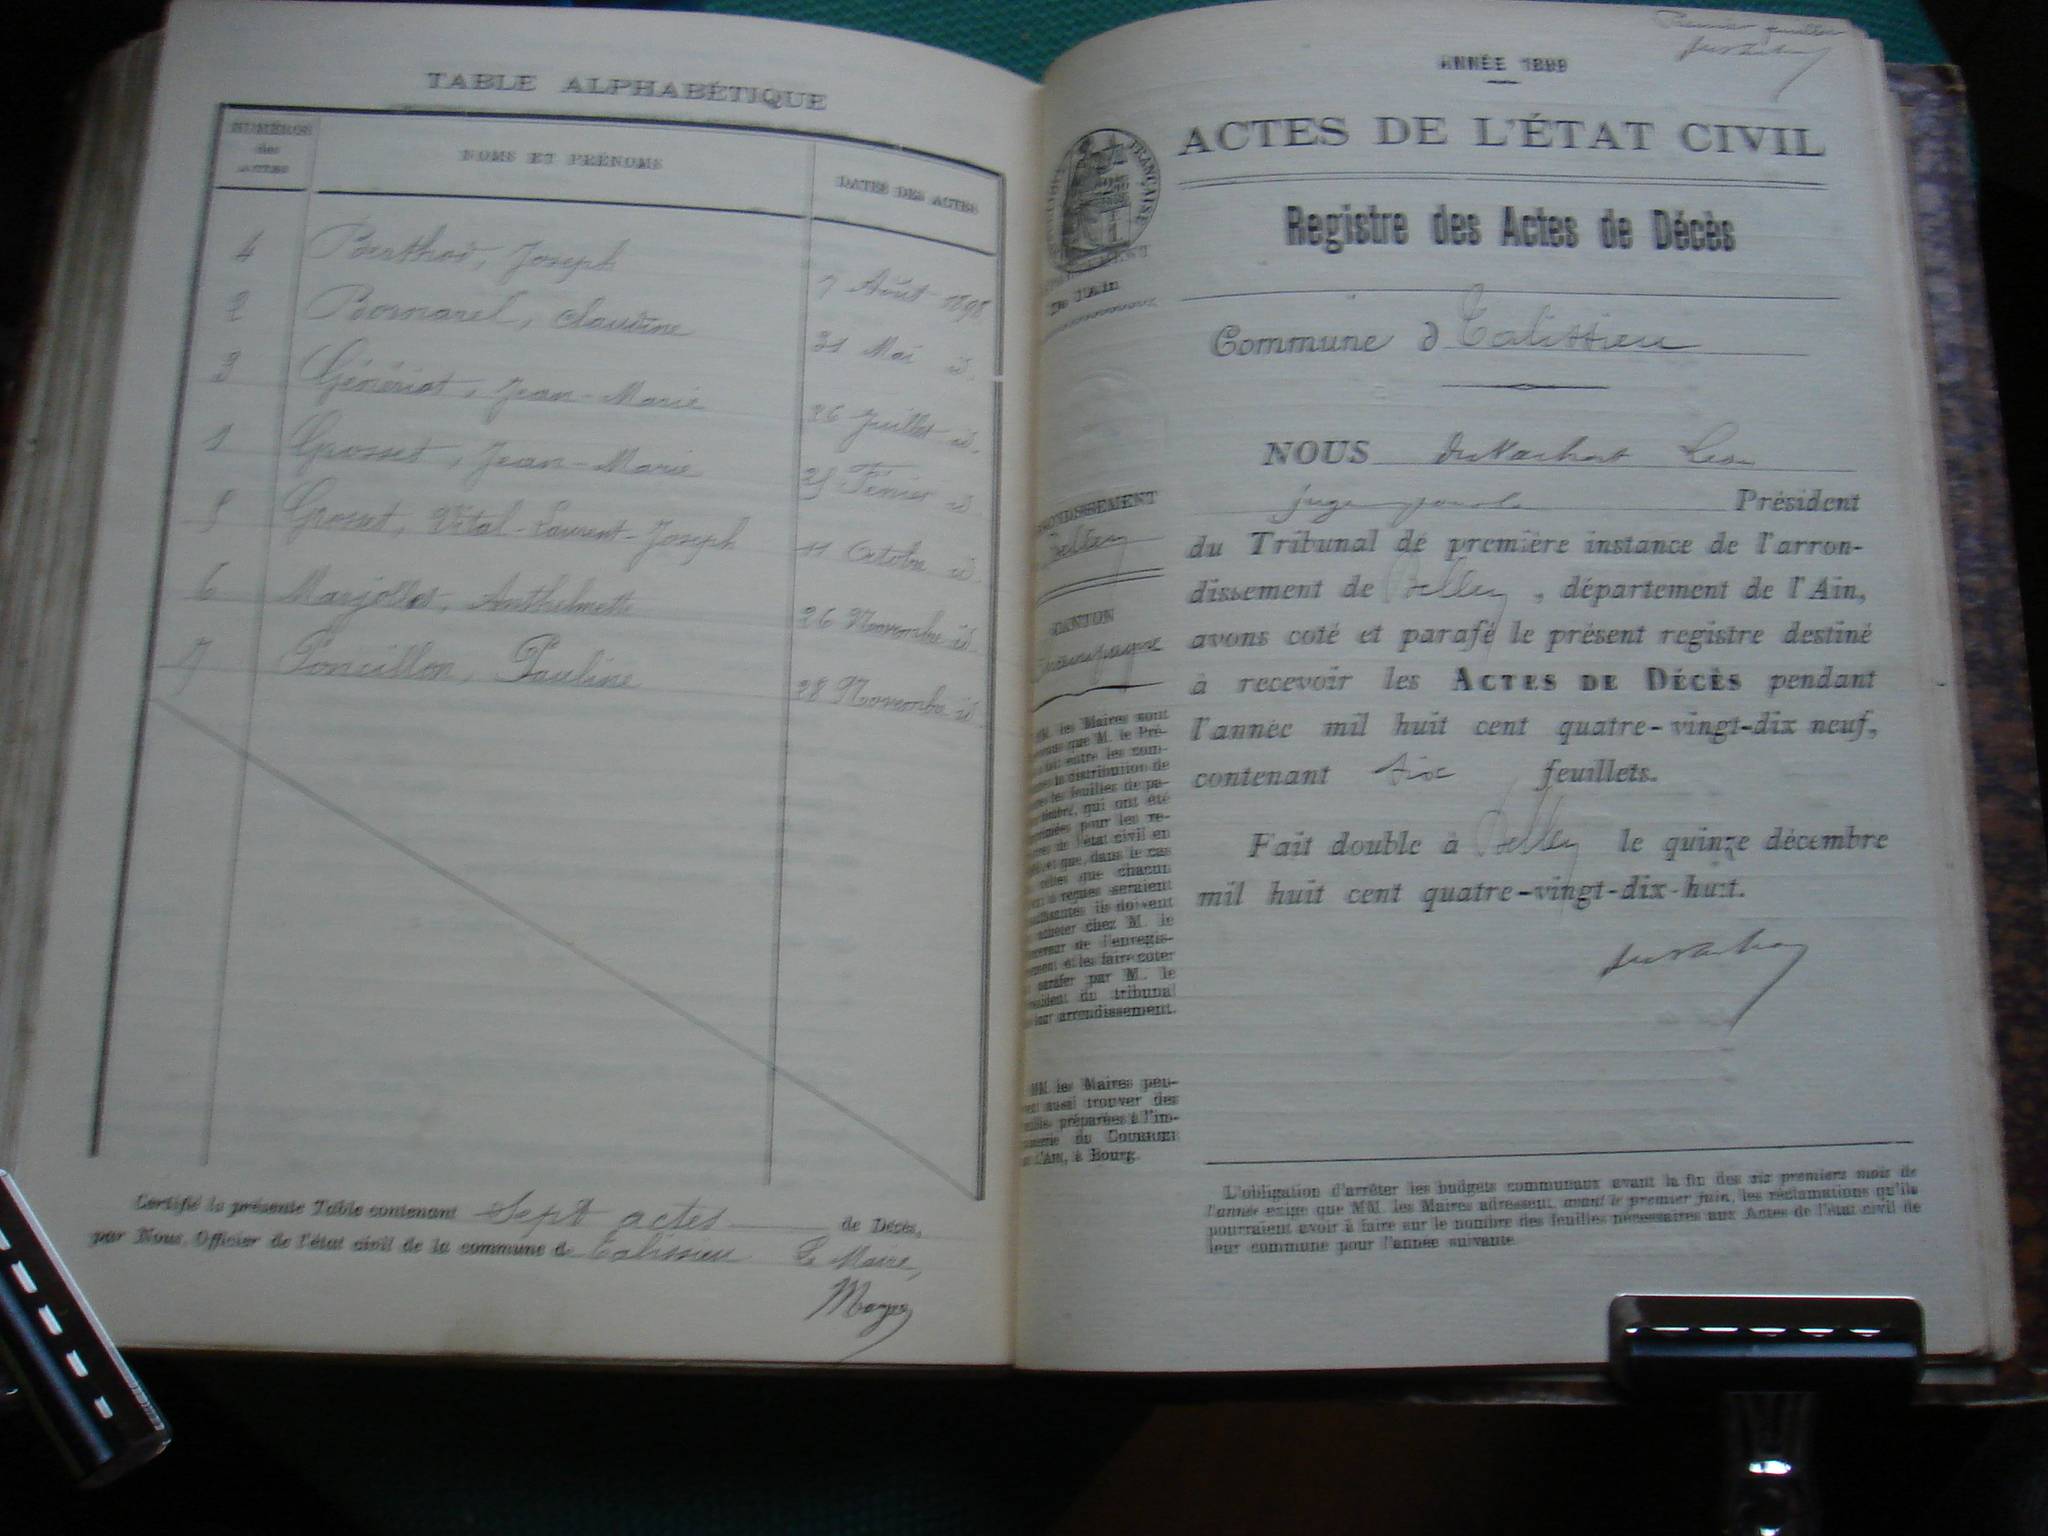 TABLE ALPHABÉTIQUE
NUMÉROS des ACTES NOMS ET PRÉNOMS DATES DES ACTES
4 Berthod, Joseph 7 Août 1898
2 Bornarel, Claudine 31 Mai id.
3 Génériat, Jean-Marie 26 Juillet id.
1 Grosset, Jean-Marie 25 Février id.
5 Grosset, Vital-Laurent-Joseph 11 Octobre id.
6 Marjollet, Anthelmette 26 Novembre id.
7 Poncillon, Pauline 28 Novembre id.
Certifié la présente Table contenant Sept actes de Décès,
par Nous, Officier de l'état civil de la commune de Talissieu Le Maire,
Premier feuillet
ANNÉE 1899
ACTES DE L'ÉTAT CIVIL
FRANÇAISE
De l'Ain
Registre des Actes de Décès
Commune d Talissieu
NOUS
Président
du Tribunal de première instance de l'arron-
dissement de Belley, département de l'Ain,
avons coté et parafé le présent registre destiné
à recevoir les ACTES DE DÉCÈS pendant
l'année mil huit cent quatre-vingt-dix neuf,
contenant six feuillets.
Fait double à Belley le quinze décembre
mil huit cent quatre-vingt-dix-huit.
Belley
CANTON
les Maires sont
que M. le Pré-
entre les com-
la distribution de
les feuilles de pa-
timbre, qui ont été
pour les re-
de l'état civil en
et que, dans le cas
celles que chacun
reçues seraient
ils doivent
acheter chez M. le
de l'enregis-
et les faire coter
parafer par M. le
du tribunal
leur arrondissement.
MM. les Maires peu-
aussi trouver des
préparées à l'im-
du COURRIER
L'AIN, à Bourg.
L'obligation d'arrêter les budgets communaux avant la fin des six premiers mois de
l'année exige que MM. les Maires adressent, avant le premier juin, les réclamations qu'ils
pourraient avoir à faire sur le nombre des feuilles nécessaires aux Actes de l'état civil de
leur commune pour l'année suivante.